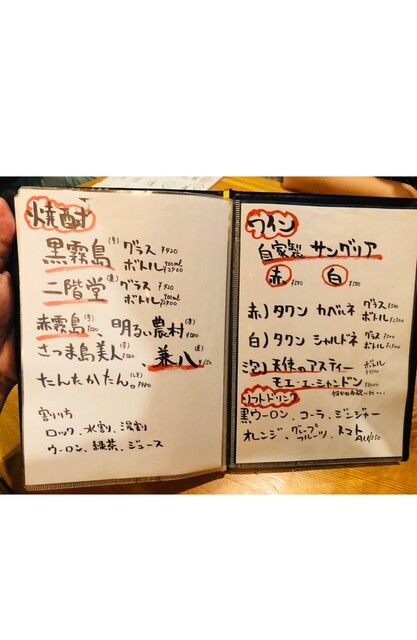 焼酎
黒霧島(芋) グラス ¥420
ボトル 900ml ¥2900
二階堂(麦) グラス ¥420
ボトル 900ml ¥2900
赤霧島(芋)、明るい農村(芋)
さつま島美人(芋)、兼八(麦)
たんたかたん。(しそ)
割いち
ロック、水割、湯割
ウーロン、緑茶、ジュース
ワイン
自家製 サングリア
赤 白
赤)タウン カベルネ グラス
ボトル
白)タウン シャルドネ グラス
ボトル
泡)天使のアスティー ボトル
モエ・エ・シャンドン
ソフトドリンク
黒ウーロン、コーラ、ジンジャー
オレンジ、グレープフルーツ、トマト